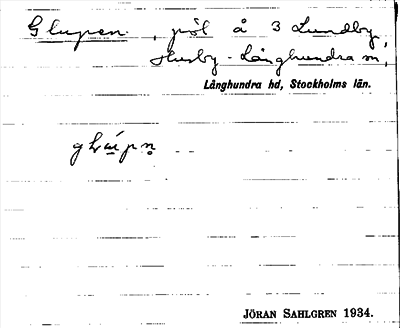 Glupen, pöl å 3 Lundby,
Husby-Långhundra sn,
Långhundra hd, Stockholms län.
JÖRAN SAHLGREN 1934.